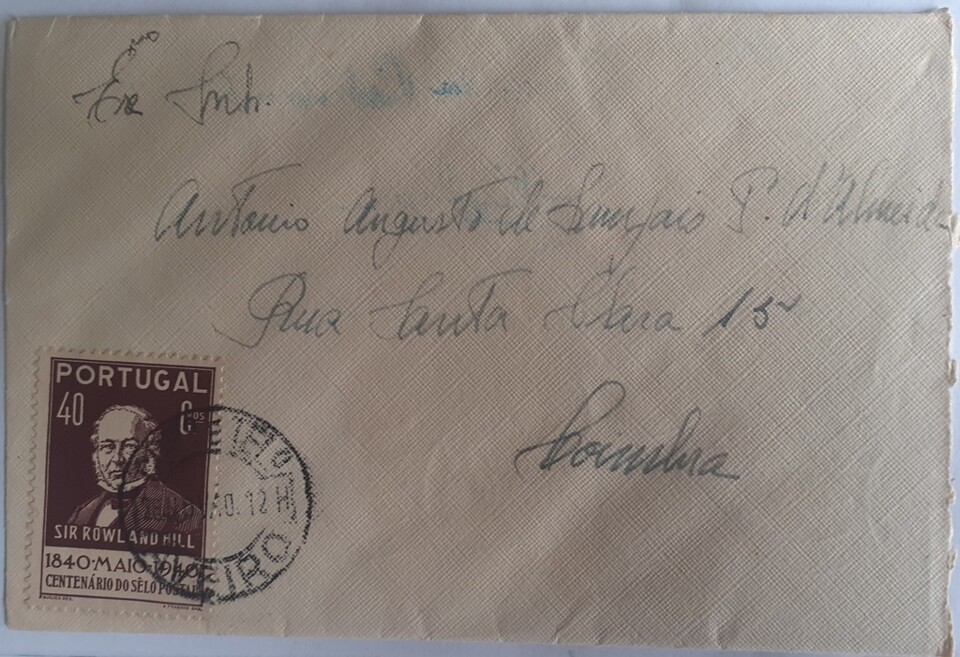 Exmo Snh.
Antonio Augusto de Sampaio P. d'Almeida
Rua Santa Clara 15
Coimbra
PORTUGAL
40 C.vos
SIR ROWLAND HILL
1840·MAIO·1940
CENTENÁRIO DO SÊLO POSTAL
40. 12 H
AVEIRO